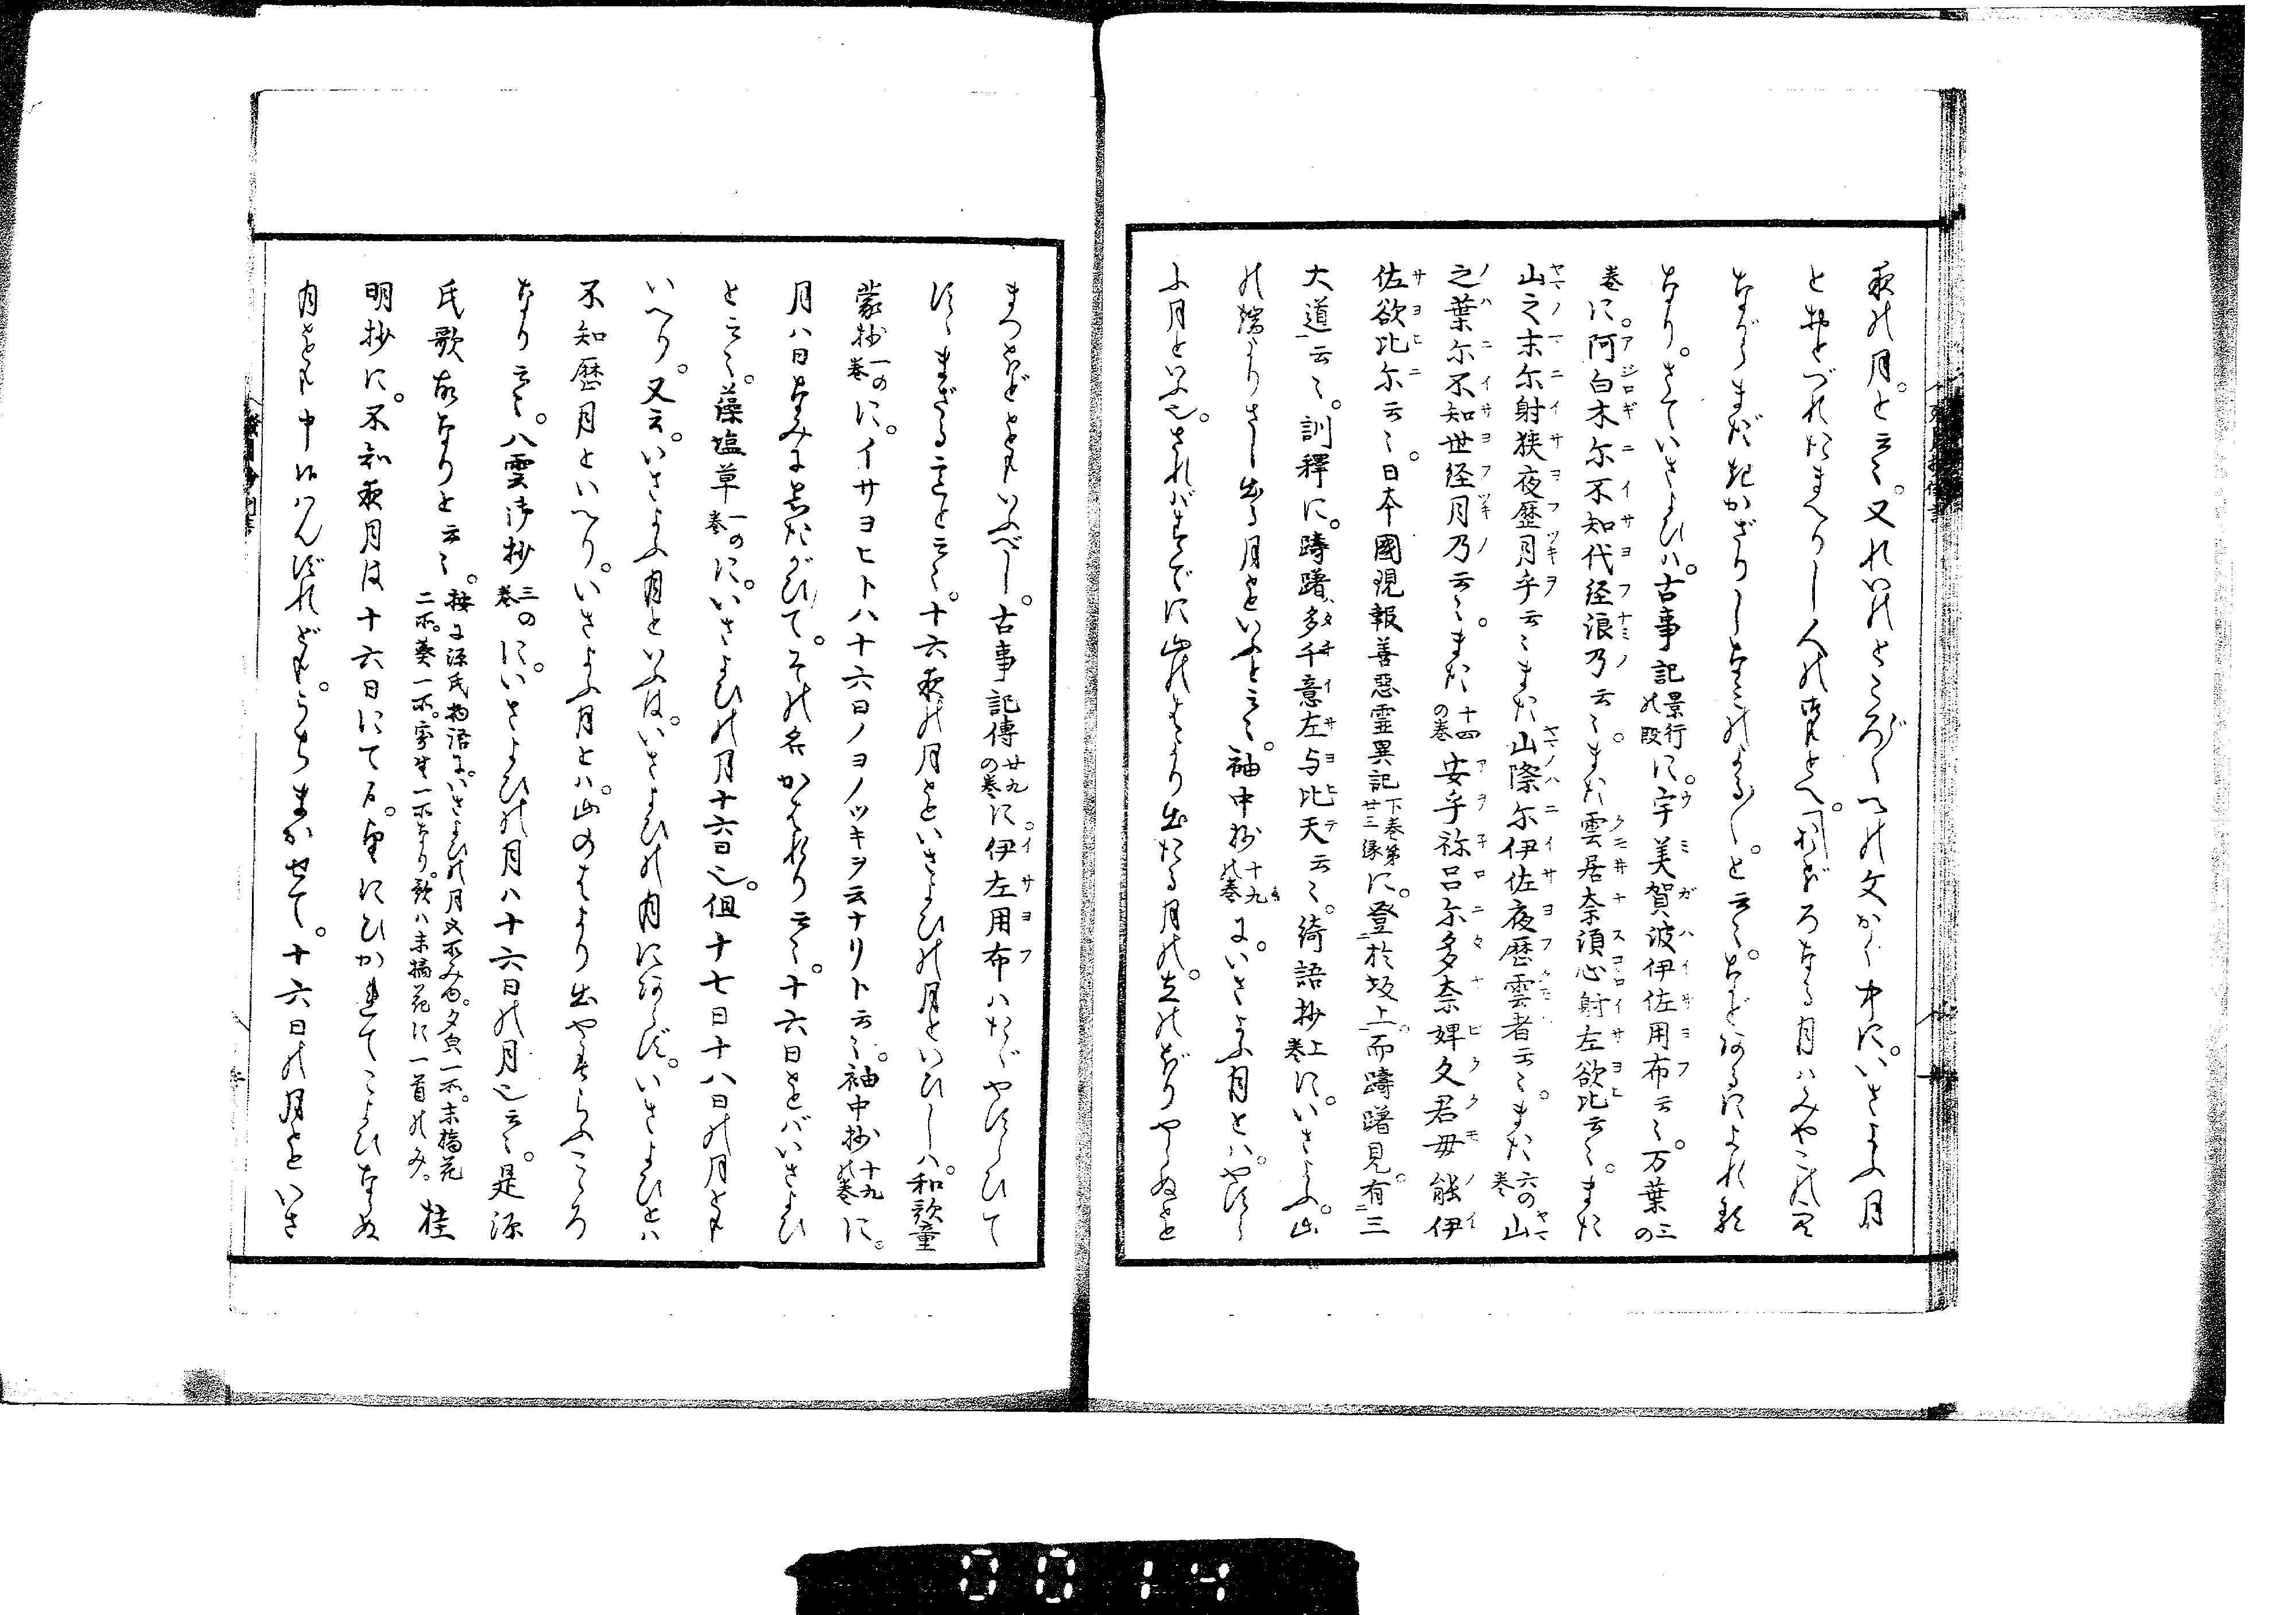 夜の月。と云々。又れいのところ〴〵の文かく中に。いさよふ月
とおとづれたまへりし人の御もとへ。おぼろなる月はみやこの空
ながらまだきかざりしなみのよる〳〵。と云々。などあるによれる
なり。さていさよひハ。古事記景行の段に。宇美賀波伊佐用布云々。万葉三の
巻に。阿白木尓不知代経浪乃云々。また雲居奈須心射左欲比云々。また
山之末尓射狭夜歴月乎云々また山際尓伊佐夜歴雲者云々。また六の巻山
之葉尓不知世経月乃云々。また十四の巻安乎祢呂尓多奈婢久君毋能伊
佐欲比尓云々。日本國現報善惡霊異記下巻第廿三縁に。登於坂上。而躊躇見。有三
大道云々。訓釋に。躊躇多千意左与比天云々。綺語抄上巻に。いさよふ。山
の端よりさし出る月をいふと云々。袖中抄十九の巻に。いさよふ月とハ。やすら
ふ月といふ也。されバすでに山のはより出たる月の。立のぼりやらぬを
まつほどをもいふべし。古事記傳廿九の巻に。伊左用布ハたゞやすらひて
すゝまざる意と云々。十六夜の月をいさよひの月といひしハ。和歌童
蒙抄一の巻に。イサヨヒトハ十六日ノヨノツキヲ云ナリト云々。袖中抄十九の巻に。
月ハ日なみにしたがひて。その名かはれり云々。十六日をバいさよひ
と云々。藻塩草一の巻に。いさよひの月十六日也。但十七日十八日の月をも
いへり。又云。いさよふ月といふは。いさよひの月にあらず。いさよひとハ
不知歴月といへり。いさよふ月とハ。山のはより出やすらふこころ
なり云々。八雲御抄三の巻に。いさよひの月ハ十六日の月也云々。是源
氏歌故なりと云々。按に源氏物語に。いさよひの月文所みゆ。夕㒵一所。末摘花二所。葵一所。寄生一所なり。歌ハ末摘花に一首のみ。桂
明抄に。不知夜月は十六日にて候。望にひかれてこよひならぬ
月をも申候はんずれども。うちまかせて。十六日の月をいさ
0014